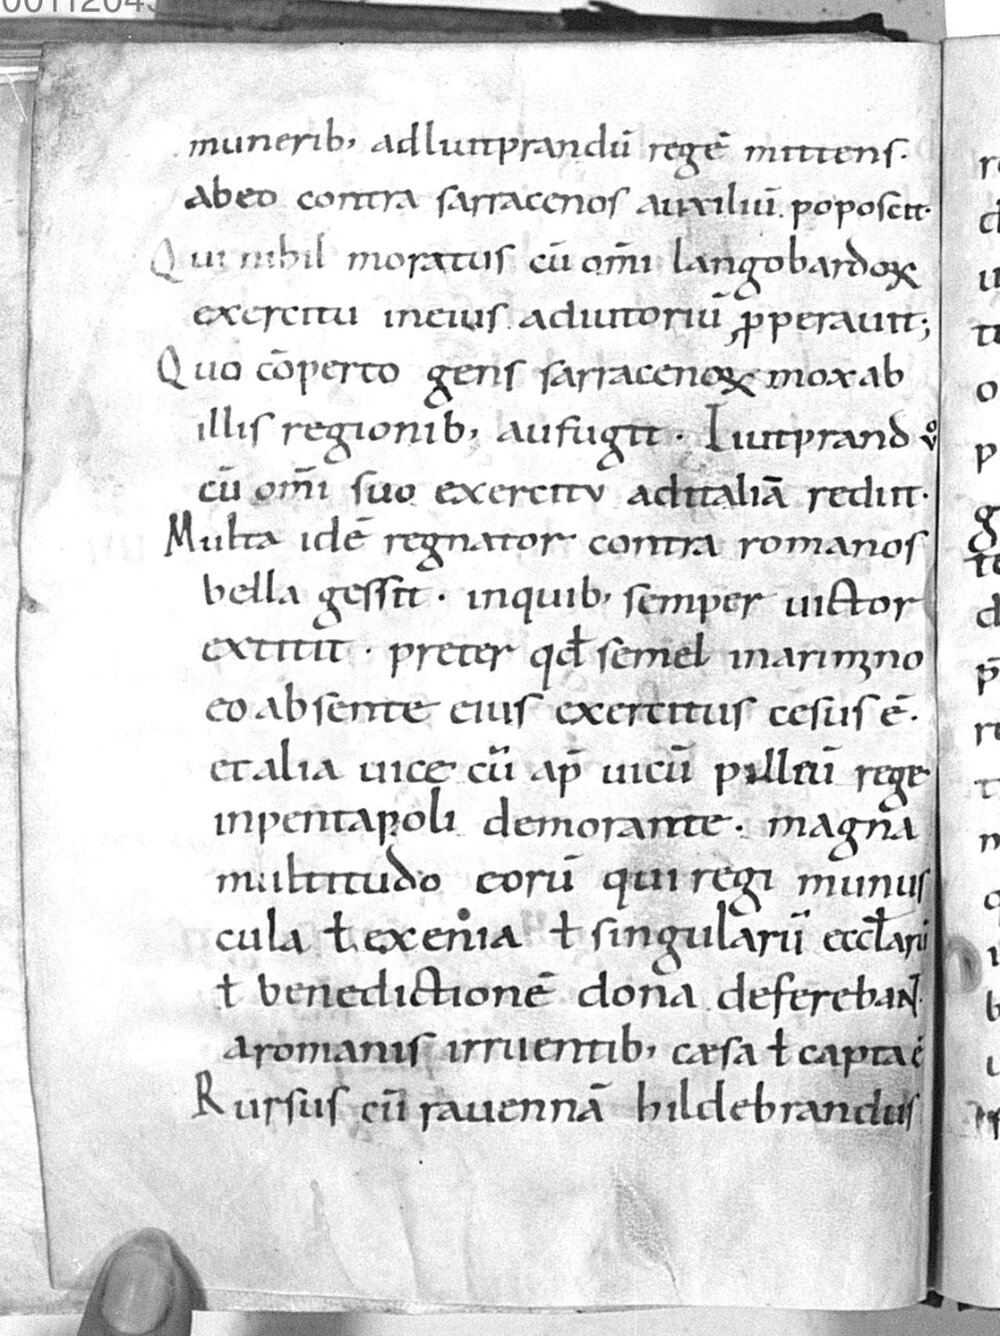 munerib; adluitprandū regē mittens.
abeo contra sarracenos auxiliū poposcit.
Qui nihil moratus cū om̄i langobardoꝝ
exercitu ineius adiutoriū ꝓperauit;
Quo cōperto gens sarracenoꝝ mox ab
illis regionib; aufugit. Liutprand vͦ
cū om̄i suo exercitu aditaliā rediit.
Multa idē regnator contra romanos
bella gessit. inquib; semper uictor
extitit. preter qđ semel inarimino
eo absente eius exercitus cesus ē.
et alia uice cū ap̄ uicū pilleū rege
inpentapoli demorante. magna
multitudo eorū qui regi munus
cula ł exenia ł singularū eccłarū
ł benedictionē dona deferebant.
aromanis irruentib; cæsa ł capta ē
Rursus cū rauennā hildebrandus